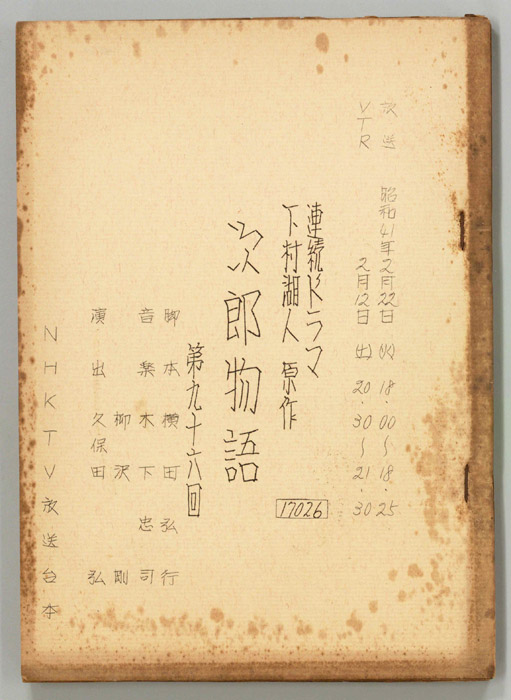 放送 昭和41年2月22日(火) 18・00～18・25
VTR 2月12日(土) 20・30～21・30
連続ドラマ
下村湖人 原作
次郎物語
第九十六回
17026
脚本 横田弘行
音楽 木下忠司
演出 柳沢剛
久保田弘
NHKTV放送台本